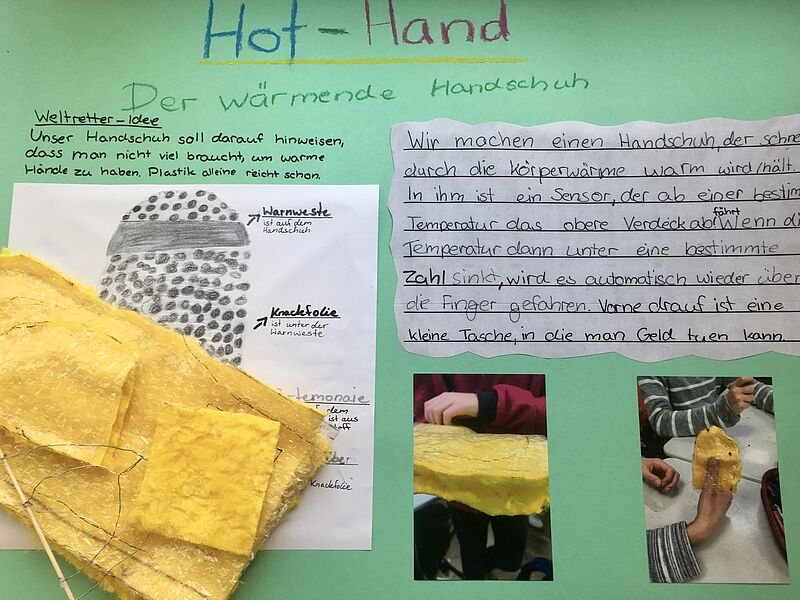 Hot-Hand
Der wärmende Handschuh
Weltretter-Idee
Unser Handschuh soll darauf hinweisen,
dass man nicht viel braucht, um warme
Hände zu haben. Plastik alleine reicht schon.
Warnweste
ist auf dem
Handschuh
Knackfolie
ist unter der
Warnweste
temonaie
dem
ist aus
über
Knackfolie
Wir machen einen Handschuh, der schne
durch die körperwärme warm wird/hält.
In ihm ist ein Sensor, der ab einer bestim
Temperatur das obere Verdeck abfährt. Wenn di
Temperatur dann unter eine bestimmte
Zahl sinkt, wird es automatisch wieder über
die Finger gefahren. Vorne drauf ist eine
kleine Tasche, in die man Geld tuen kann.